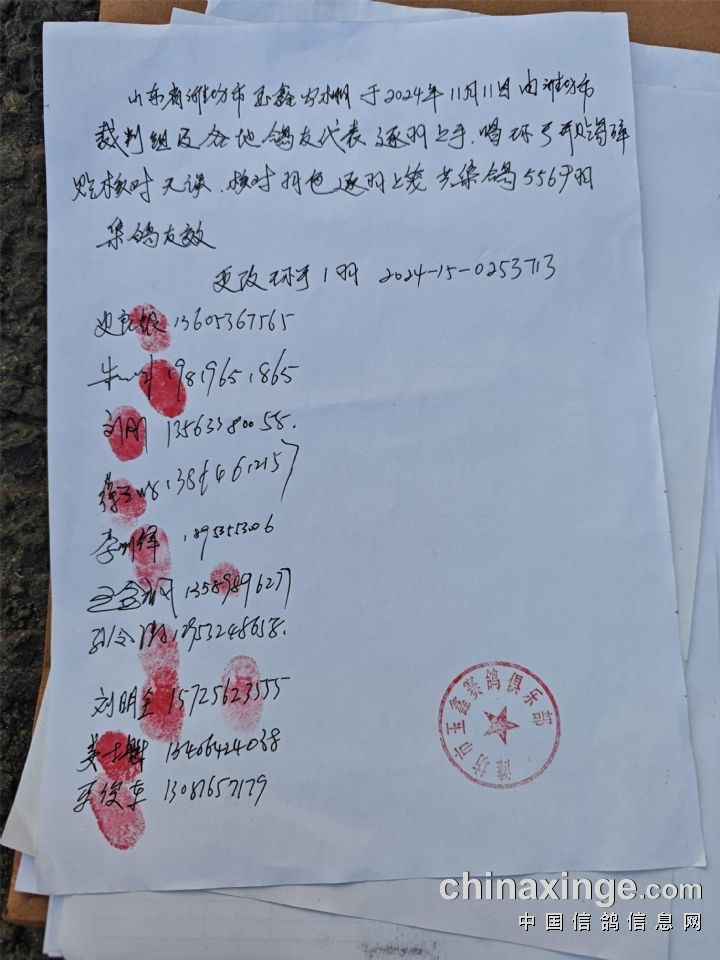 山东省潍坊市玉鑫公棚于2024年11月11日由潍坊市
裁判组及各地鸽友代表逐羽上手.唱环号开贴写碎
贴核对无误.核对羽色逐羽上笼共集鸽5569羽
集鸽有效
更改环号1羽 2024-15-0253713
13605367565
19819651865
刘刚 13563380058.
李 18953553006
13589896277
18953248658.
刘明全 15725623555
姜士 13406424038
王俊 13081657179
潍坊市玉鑫赛鸽俱乐部
chinaxinge.com
中国信鸽信息网